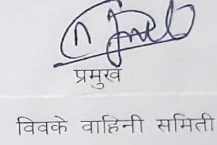 प्रमुख
विवके वाहिनी समिती